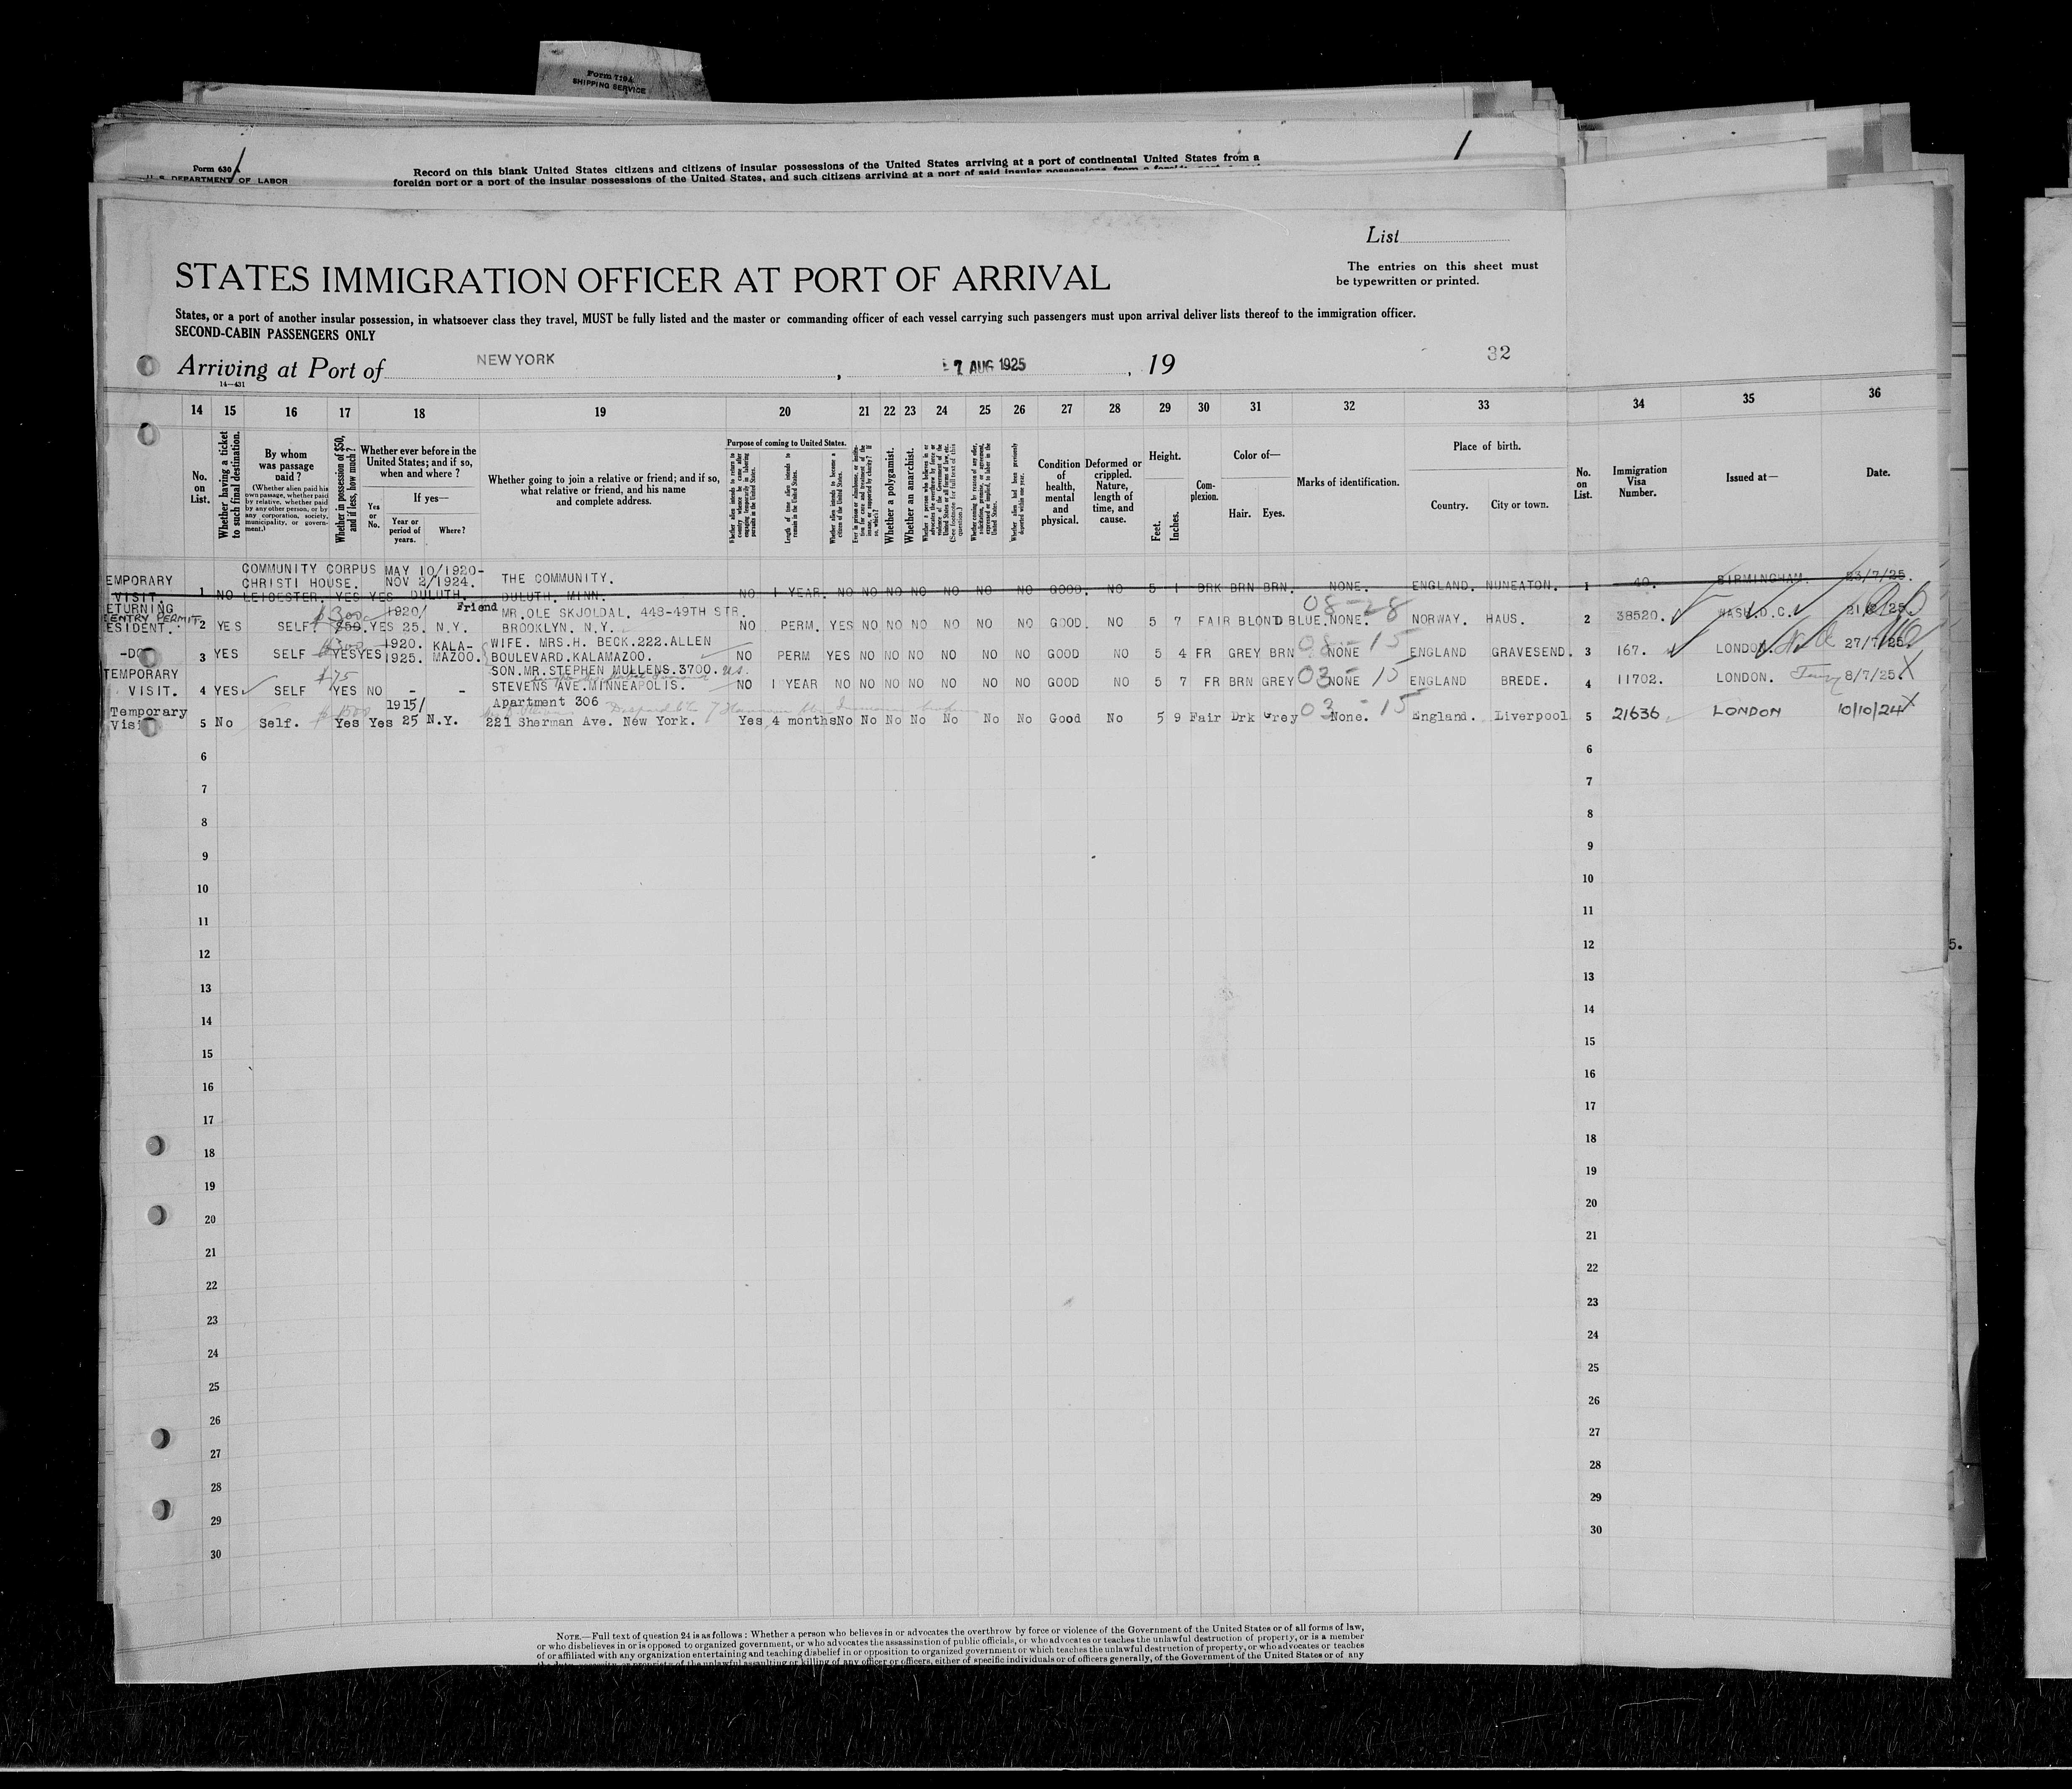 Form 7194
SHIPPING SERVICE
Form 630
U. S. DEPARTMENT OF LABOR
Record on this blank United States citizens and citizens of insular possessions of the United States arriving at a port of continental United States from a
foreign port or a port of the insular possessions of the United States, and such citizens arriving at a port of said insular possessions from a foreign port
1
List
STATES IMMIGRATION OFFICER AT PORT OF ARRIVAL
The entries on this sheet must
be typewritten or printed.
States, or a port of another insular possession, in whatsoever class they travel, MUST be fully listed and the master or commanding officer of each vessel carrying such passengers must upon arrival deliver lists thereof to the immigration officer.
SECOND-CABIN PASSENGERS ONLY
Arriving at Port of NEW YORK , 7 AUG 1925 , 19 32
14—431
14 15 16 17 18 19 20 21 22 23 24 25 26 27 28 29 30 31 32 33 34 35 36
No. on List.
Whether having a ticket to such final destination.
By whom was passage paid?
(Whether alien paid his own passage, whether paid by relative, whether paid by any other person, or by any corporation, society, municipality, or government.)
Whether in possession of $50, and if less, how much?
Whether ever before in the United States; and if so, when and where?
Yes or No.
If yes—
Year or period of years.
Where?
Whether going to join a relative or friend; and if so, what relative or friend, and his name and complete address.
Purpose of coming to United States.
Length of time alien intends to remain in the United States.
Whether alien intends to become a citizen of the United States.
Whether a polygamist.
Whether an anarchist.
Condition of health, mental and physical.
Deformed or crippled. Nature, length of time, and cause.
Height.
Feet.
Inches.
Complexion.
Color of—
Hair.
Eyes.
Marks of identification.
Place of birth.
Country.
City or town.
No. on List.
Immigration Visa Number.
Issued at—
Date.
EMPORARY COMMUNITY CORPUS MAY 10/1920-
CHRISTI HOUSE. NOV 2/1924. THE COMMUNITY.
VISIT. 1 NO LEICESTER. YES YES DULUTH. DULUTH. MINN. NO 1 YEAR. NO NO NO NO NO NO NO GOOD. NO 5 1 DRK BRN BRN. NONE. ENGLAND. NUNEATON. 1 40. BIRMINGHAM. 23/7/25.
ETURNING $300 1920/ Friend MR.OLE SKJOLDAL. 443-49TH STR. 08-28
ENTRY PERMIT
ESIDENT. 2 YES SELF. $50 YES 25. N.Y. BROOKLYN. N.Y. NO PERM. YES NO NO NO NO NO NO GOOD. NO 5 7 FAIR BLOND BLUE. NONE. NORWAY. HAUS. 2 38520. WASH.D.C.
$300 1920. KALA- WIFE. MRS.H. BECK.222.ALLEN 08-15
-DO- 3 YES SELF YES YES 1925. MAZOO. BOULEVARD.KALAMAZOO. NO PERM YES NO NO NO NO NO NO GOOD NO 5 4 FR GREY BRN NONE ENGLAND GRAVESEND. 3 167. LONDON. 27/7/25.
TEMPORARY $75 SON.MR.STEPHEN MULLENS.3700. U.S.
VISIT. 4 YES SELF YES NO - - STEVENS AVE.MINNEAPOLIS. NO 1 YEAR NO NO NO NO NO NO NO GOOD NO 5 7 FR BRN GREY 03 NONE 15 ENGLAND BREDE. 4 11702. LONDON. 8/7/25. X
Temporary 1915/ Apartment 306
Visit 5 No Self. $1500 Yes Yes 25 N.Y. 221 Sherman Ave. New York. Yes 4 months No No No No No No No Good No 5 9 Fair Drk Grey 03 None. 15 England. Liverpool 5 21636 LONDON 10/10/24 X
6 6
7 7
8 8
9 9
10 10
11 11
12 12
13 13
14 14
15 15
16 16
17 17
18 18
19 19
20 20
21 21
22 22
23 23
24 24
25 25
26 26
27 27
28 28
29 29
30 30
5.
NOTE.—Full text of question 24 is as follows: Whether a person who believes in or advocates the overthrow by force or violence of the Government of the United States or of all forms of law,
or who disbelieves in or is opposed to organized government, or who advocates the assassination of public officials, or who advocates or teaches the unlawful destruction of property, or is a member
of or affiliated with any organization entertaining and teaching disbelief in or opposition to organized government or which teaches the unlawful destruction of property, or who advocates or teaches
the duty, necessity, or propriety of the unlawful assaulting or killing of any officer or officers, either of specific individuals or of officers generally, of the Government of the United States or of any